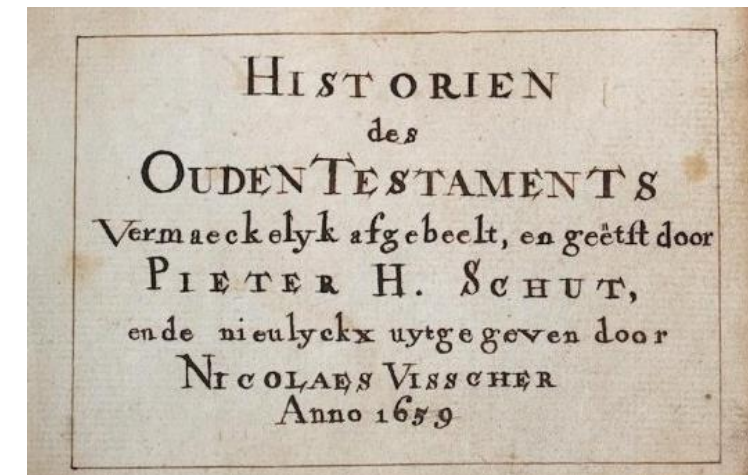 HISTORIEN
des
OUDEN TESTAMENTS
Vermaeckelyk afgebeelt, en geëtst door
PIETER H. SCHUT,
ende nieulyckx uytgegeven door
NICOLAES VISSCHER
Anno 1659